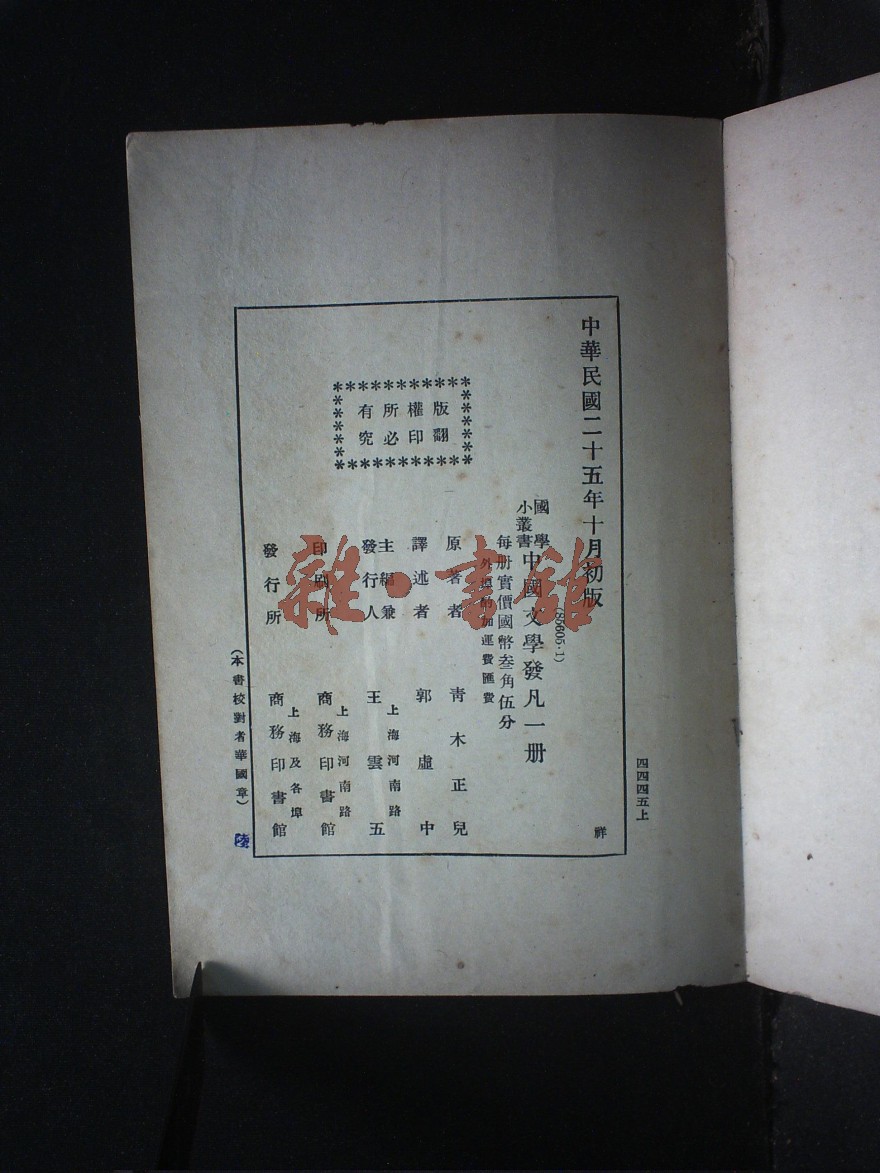 四四四五上
中華民國二十五年十月初版
祥
(85605·1)
國學小叢書
中國文學發凡一册
每册實價國幣叁角伍分
外埠酌加運費匯費
版權所有
翻印必究
原著者 青木正兒
譯述者 郭虛中
主編兼發行人 王雲五
上海河南路
印刷所 商務印書館
上海河南路
發行所 商務印書館
上海及各埠
(本書校對者華國章)
陸
雜·書館